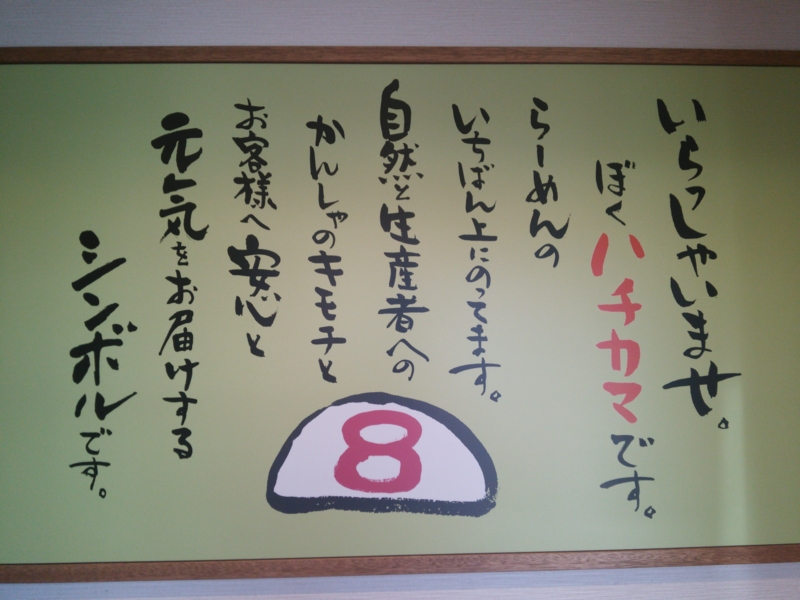 いらっしゃいませ。
ぼくハチカマです。
らーめんの
いちばん上にのってます。
自然と生産者への
かんしゃのキモチと
お客様へ安心と
元気をお届けする
シンボルです。
8